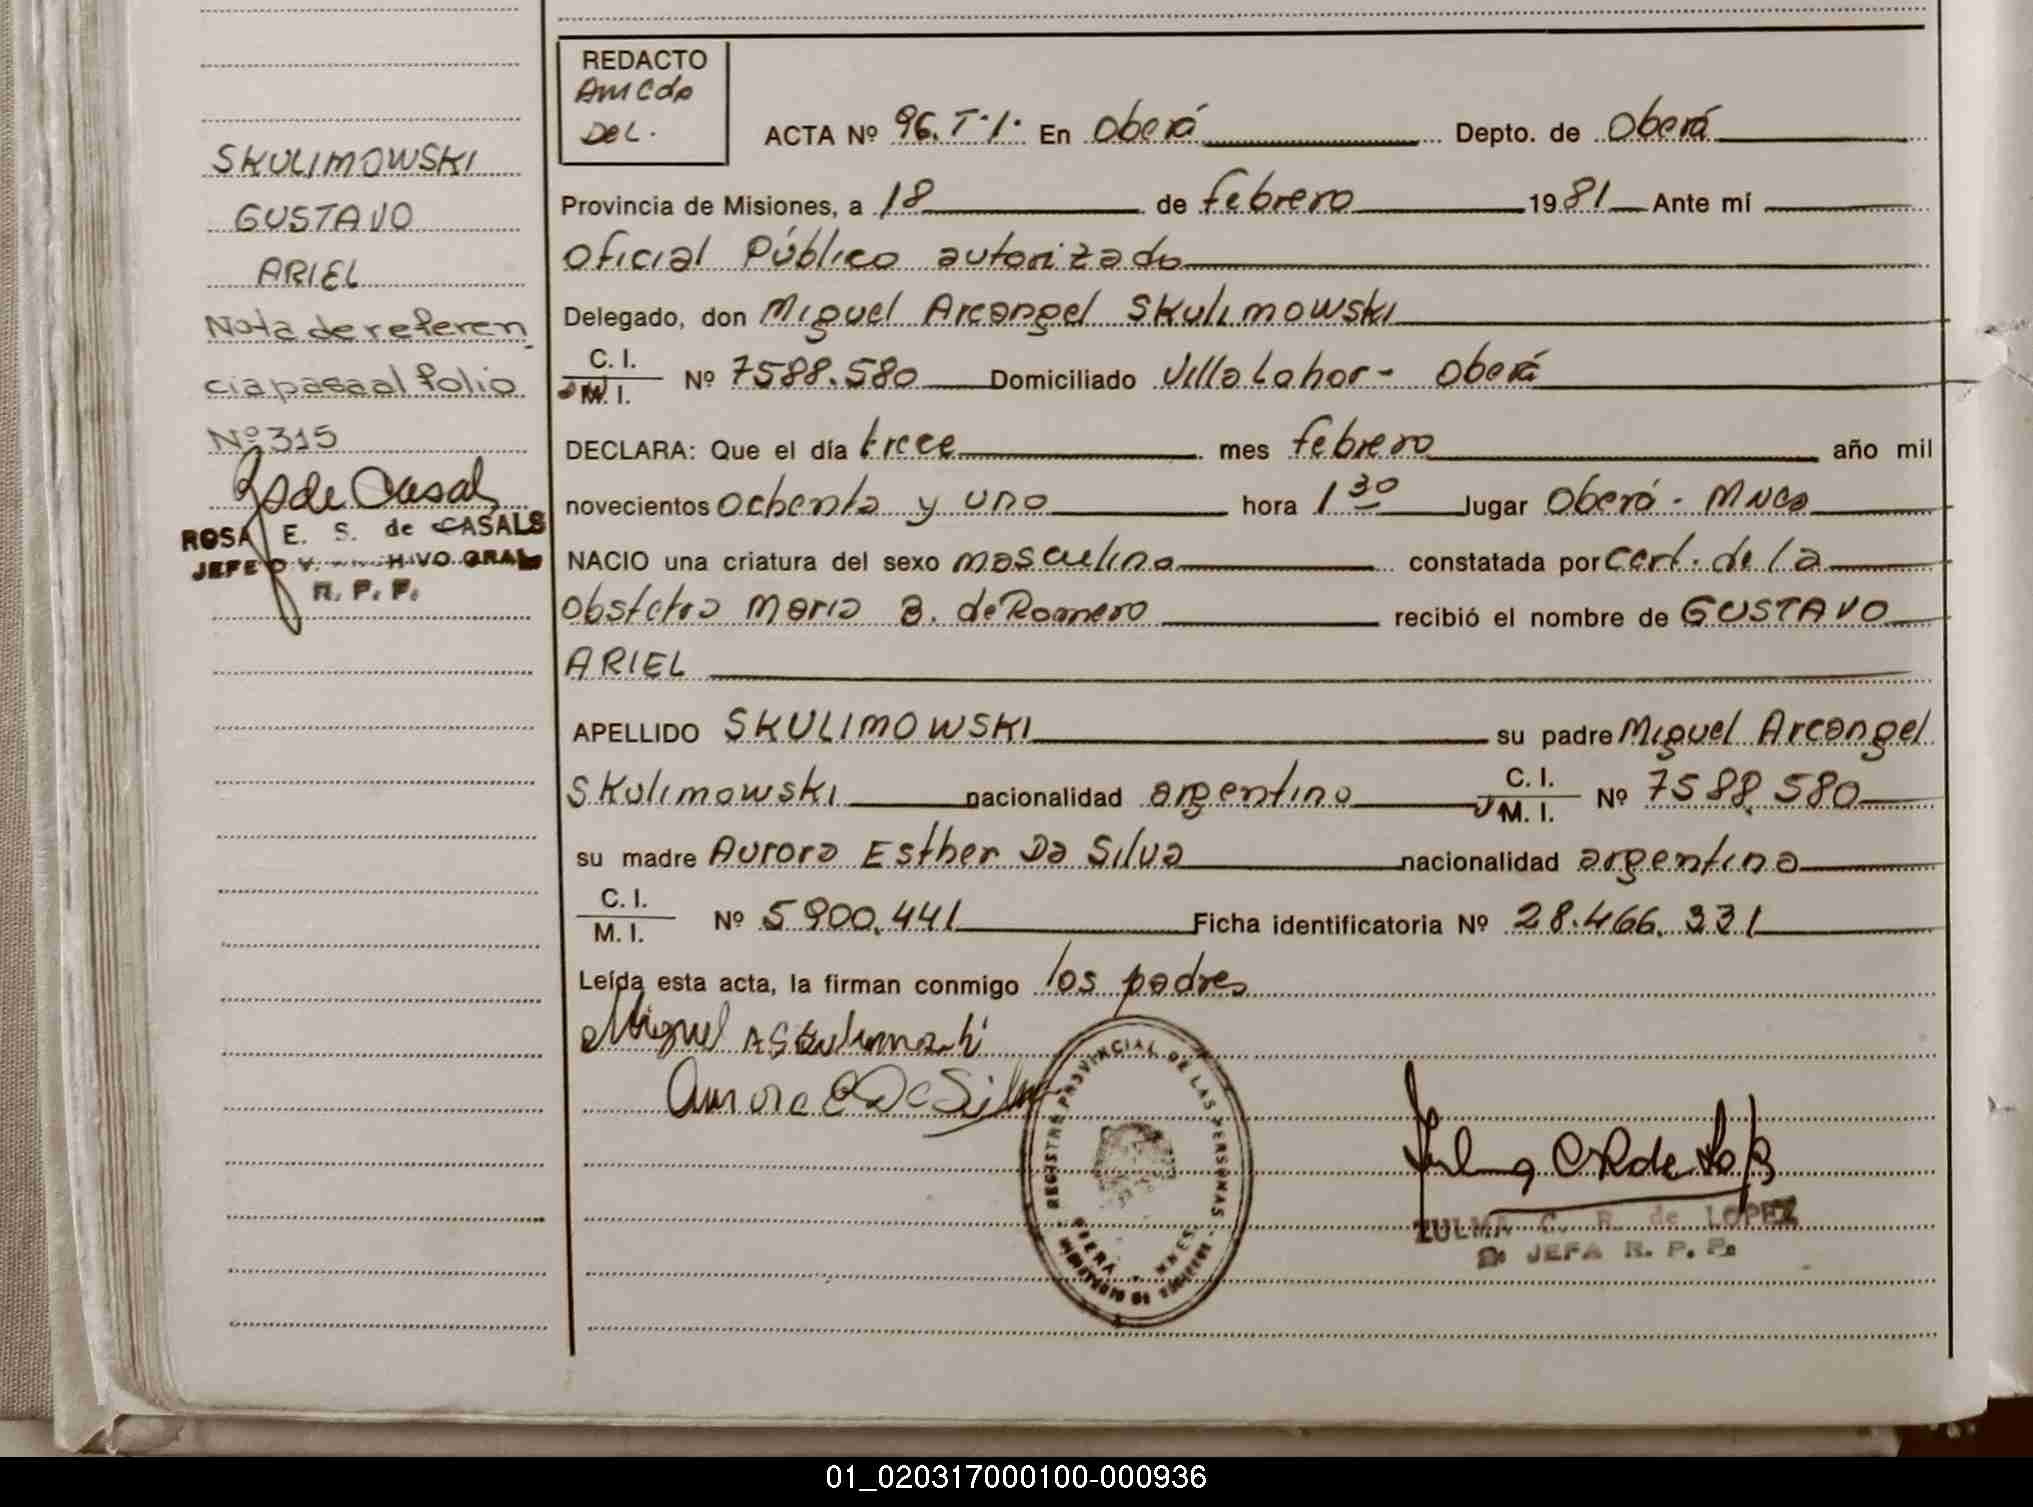 REDACTO
Amcdo
Del.
ACTA Nº 96. T. 1. En Oberá Depto. de Oberá
Provincia de Misiones, a 18 de febrero 1981 Ante mí
Oficial Público autorizado
Delegado, don Miguel Arcangel SKulimowski
C. I.
M. I. Nº 7588.580 Domiciliado Villa Lahor - Oberá
DECLARA: Que el día trece mes febrero año mil
novecientos ochenta y uno hora 1 30 lugar Oberá - Mnes
NACIO una criatura del sexo masculino constatada por cert. de la
Obstetra Maria B. de Romero recibió el nombre de GUSTAVO
ARIEL
APELLIDO SKULIMOWSKI su padre Miguel Arcangel
SKulimowski nacionalidad argentino C. I. M. I. Nº 7588.580
su madre Aurora Esther Da Silva nacionalidad argentina
C. I.
M. I. Nº 5900.441 Ficha identificatoria Nº 28.466.331
Leída esta acta, la firman conmigo los padres
Miguel A Skulimowski
Aurora E Da Silva
REGISTRO PROVINCIAL DE LAS PERSONAS
OBERÁ MNES
ZULMA C. R. de LOPEZ
JEFA R. P. P.
SKULIMOWSKI
GUSTAVO
ARIEL
Nota de referen
cia pasa al folio
Nº 315
R s de Casals
ROSA E. S. de CASALS
JEFE HIVO GRAL
R. P. P.
01_020317000100-000936